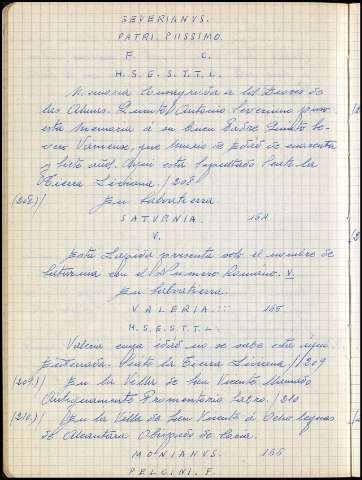 SEVERIANVS.
PATRI. PIISSIMO.
F. C.
H. S. E. S. T. T. L.
Memoria Consagrada a los Dioses de
las Almas. Quinto Antonio Severiano puso
esta Memoria á su buen Padre Quinto
que murio de Edad de
y siete años. Aqui está Sepultado Seate la
Tierra Liviana. /208
(208)/ En Salvatierra.
SATVRNIA. 164
V.
Esta Lapida presenta solo el nombre de
Saturnia con el Numero Romano. V.
En Salvatierra.
VALERIA.::: 165
H. S. E. S. T. T. L.
Valeria cuya edad no se sabe está aqui
Enterrada. Seate la Tierra Liviana //209
(209)/ En la Villa de San Vicente llamado
Antiguamente Promontorio Sacro. /210
(210)/ En la Villa de San Vicente á Ocho leguas
de Alcantara Obispado de Coria.
MONIANVS. 166
PELCINI. F.